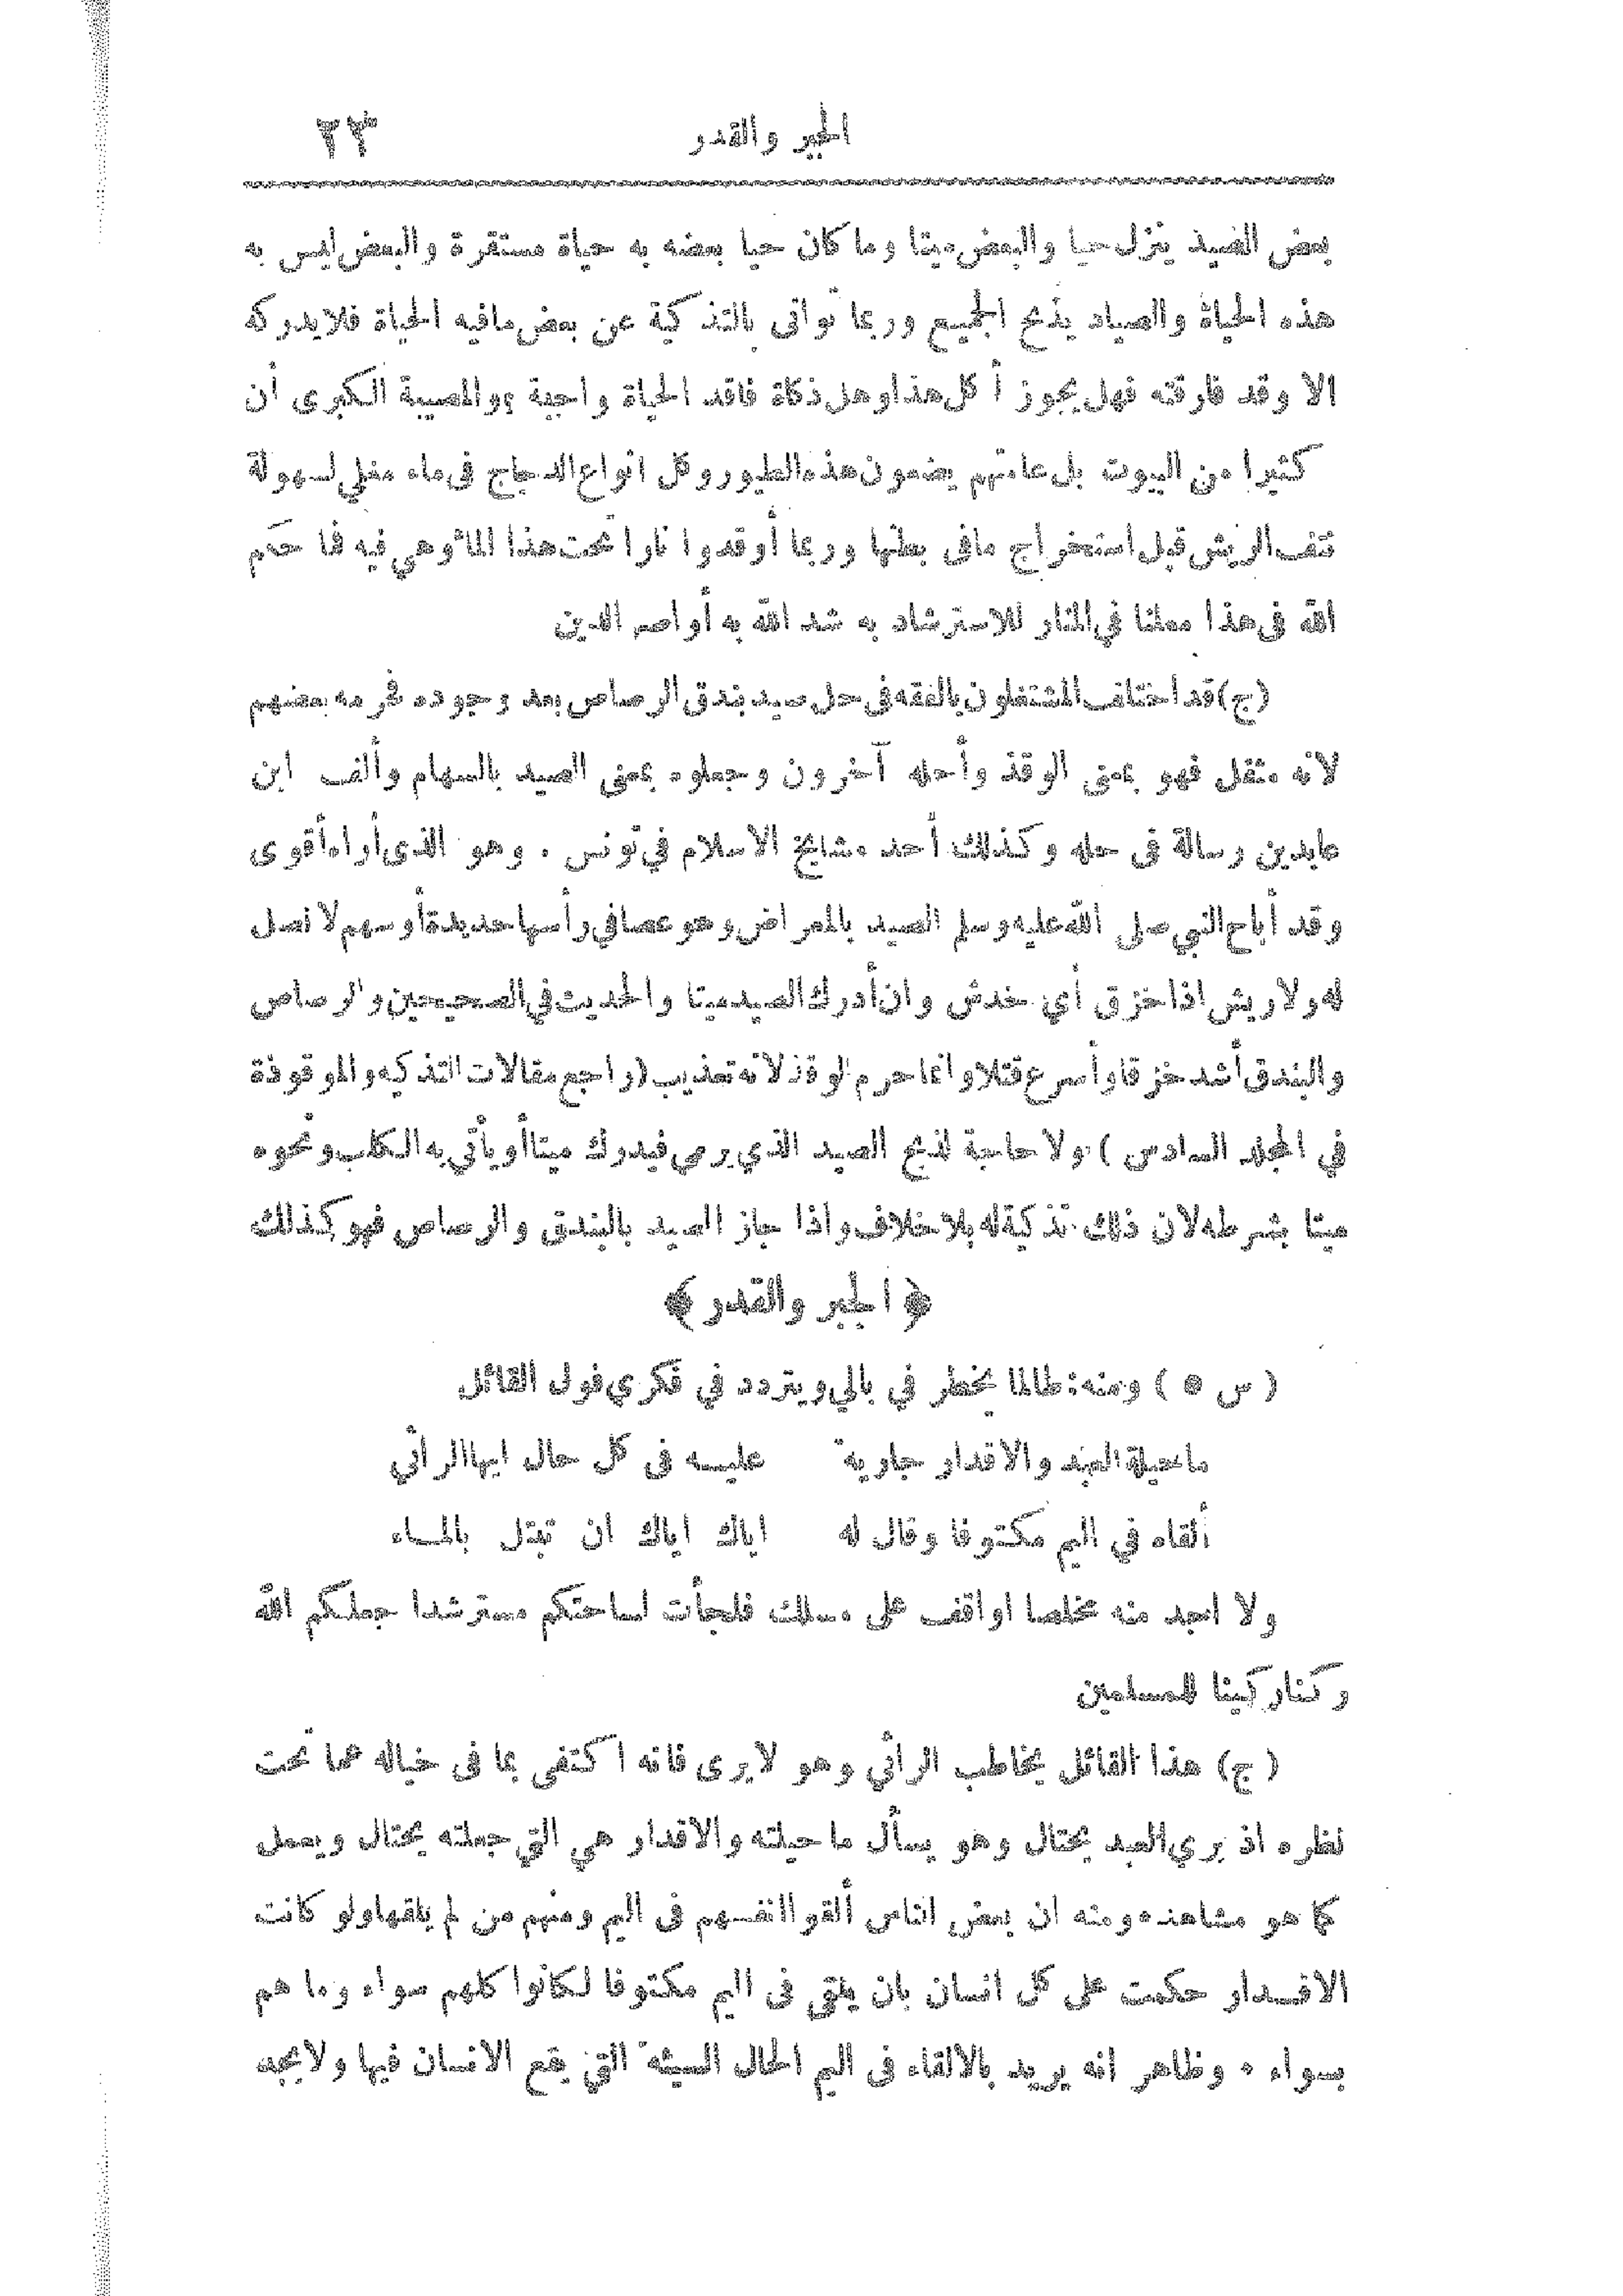 الجبر والقدر ٢٣
بعض الصيد ينزل حيا والبعض ميتا وما كان حيا بعضه به حياة مستقرة والبعض ليس به
هذه الحياة والصياد يذبح الجميع وربما تواتى بالتذكية عن بعض مافيه الحياة فلا يدركه
الا وقد فارقته فهل يجوز أكل هذا وهل ذكاة فاقد الحياة واجبة ، والمصيبة الكبرى أن
كثيرا من البيوت بل عامتهم يضعون هذه الطيور وكل انواع الدجاج فى ماء مغلي لسهولة
نتف الريش قبل استخراج مافى بطنها وربما أوقدوا نارا تحت هذا الماء وهي فيه فما حكم
الله فى هذا معلنا في المنار للاسترشاد به شد الله به أواصر الدين
(ج) قد اختلف المشتغلون بالفقه فى حل صيد بندق الرصاص بعد وجوده فحرمه بعضهم
لانه مثقل فهو بمعنى الوقذ وأحله آخرون وجعلوه بمعنى الصيد بالسهام وألف ابن
عابدين رسالة فى حله وكذلك أحد مشايخ الاسلام في تونس . وهو الذى أراه أقوى
وقد أباح النبي صلى الله عليه وسلم الصيد بالمعراض وهو عصا في رأسها حديدة أو سهم لا نصل
له ولا ريش اذا خزق أي خدش وان أدرك الصيد ميتا والحديث في الصحيحين والرصاص
والبندق أشد خزقا وأسرع قتلا وانما حرم الوقذ لانه تعذيب (راجع مقالات التذكيه والموقوذة
في المجلد السادس ) ولا حاجة لذبح الصيد الذي يرمى فيدرك ميتا أو يأتي به الكلب ونحوه
ميتا بشرطه لان ذلك تذكية له بلا خلاف واذا جاز الصيد بالبندق والرصاص فهو كذلك
﴿ الجبر والقدر ﴾
( س ٥ ) ومنه : طالما يخطر في بالي ويتردد في فكري قول القائل
ما حيلة العبد والاقدار جارية عليه فى كل حال ايها الرائي
ألقاه في اليم مكتوفا وقال له اياك اياك ان تبتل بالماء
ولا اجد منه مخلصا او اقف على مسلك فلجأت لساحتكم مسترشدا جعلكم الله
ركنا ركينا للمسلمين
( ج ) هذا القائل يخاطب الرائي وهو لا يرى فانه اكتفى بما فى خياله عما تحت
نظره اذ يري العبد يحتال وهو يسأل ما حيلته والاقدار هي التي جعلته يحتال ويعمل
كما هو مشاهد ومنه ان بعض الناس ألقوا انفسهم فى اليم ومنهم من لم يلقها ولو كانت
الاقدار حكمت على كل انسان بان يلقى فى اليم مكتوفا لكانوا كلهم سواء وما هم
بسواء . وظاهر انه يريد بالالقاء فى اليم الحال السيئة التي يقع الانسان فيها ولا يجد